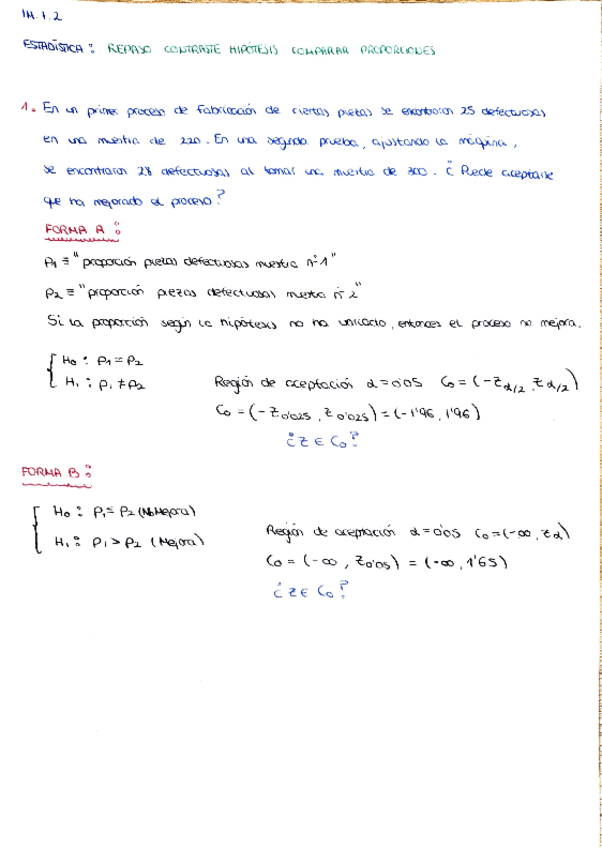 IN.1.2
ESTADÍSTICA: REPASO CONTRASTE HIPÓTESIS COMPARAR PROPORCIONES
1. En un primer proceso de fabricación de ciertas piezas se encontraron 25 defectuosas
en una muestra de 220. En una segunda prueba, ajustando la máquina,
se encontraron 28 defectuosas al tomar una muestra de 300. ¿Puede aceptarse
que ha mejorado el proceso?
FORMA A:
p₁ ≡ "proporción piezas defectuosas muestra nº1"
p₂ ≡ "proporción piezas defectuosas muestra nº2"
Si la proporción según la hipótesis no ha variado, entonces el proceso no mejora.
H₀: p₁ = p₂
H₁: p₁ ≠ p₂ Región de aceptación α=0'05 C₀ = (-z α/2, z α/2)
C₀ = (-z 0'025, z 0'025) = (-1'96, 1'96)
¿z ∈ C₀?
FORMA B:
H₀: p₁ = p₂ (No Mejora)
H₁: p₁ > p₂ (Mejora) Región de aceptación α=0'05 C₀ = (-∞, zα)
C₀ = (-∞, z 0'05) = (-∞, 1'65)
¿z ∈ C₀?